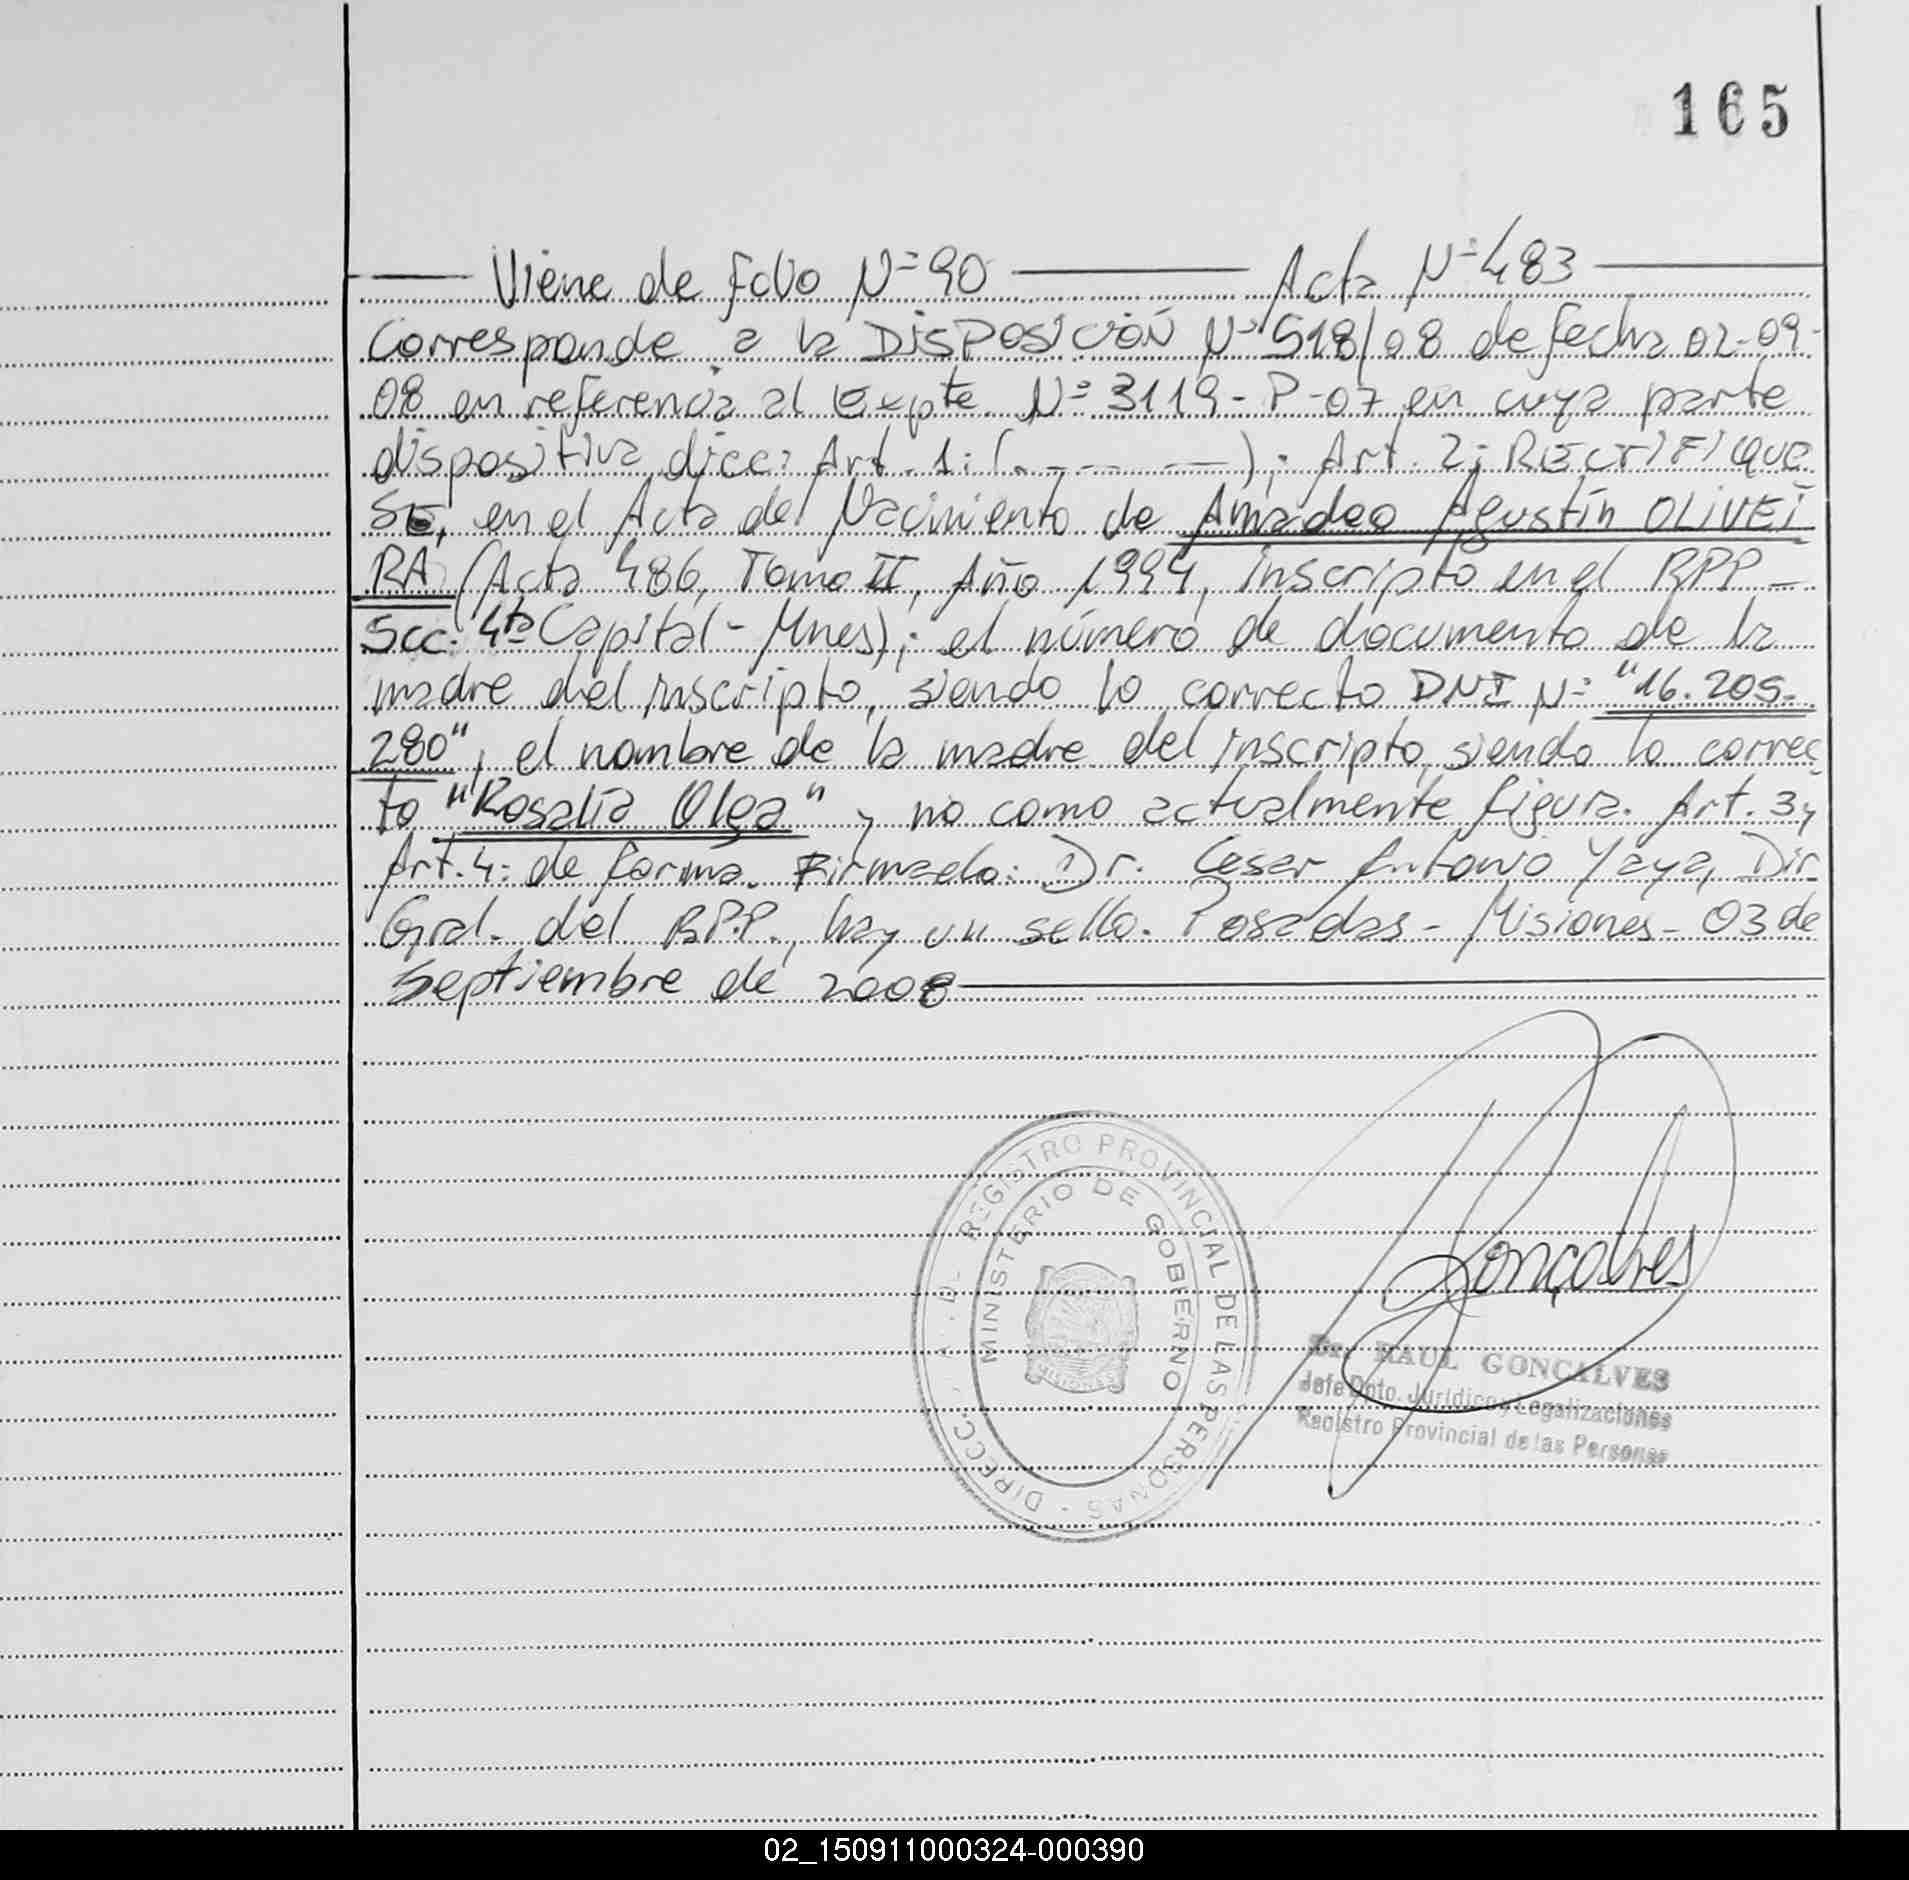 165
Viene de folio Nº 90 Acta Nº 483
Corresponde a la DISPOSICIÓN Nº 518/08 de fecha 02-09-
08 en referencia al Expte. Nº 3119-P-07 en cuya parte
dispositiva dice: Art. 1: (. - - - - - -); Art. 2: RECTIFIQUE
SE, en el Acta de Nacimiento de Amadeo Agustín OLIVEI
RA (Acta 486, Tomo II, Año 1994, inscripto en el RPP -
Scc: 4ta Capital - Mnes); el número de documento de la
madre del inscripto, siendo lo correcto DNI Nº "16.205.
280", el nombre de la madre del inscripto, siendo lo correc
to "Rosalía Olga" y no como actualmente figura. Art. 3 y
Art. 4: de forma. Firmado: Dr. Cesar Antonio Yaya, Dir.
Gral. del R.P.P., hay un sello. Posadas - Misiones - 03 de
Septiembre de 2008
REGISTRO PROVINCIAL DE LAS PERSONAS - DIRECC
MINISTERIO DE GOBIERNO
MISIONES
Gonçalves
Dr. RAUL GONCALVES
Jefe Dpto. Jurídico y Legalizaciones
Registro Provincial de las Personas
02_150911000324-000390